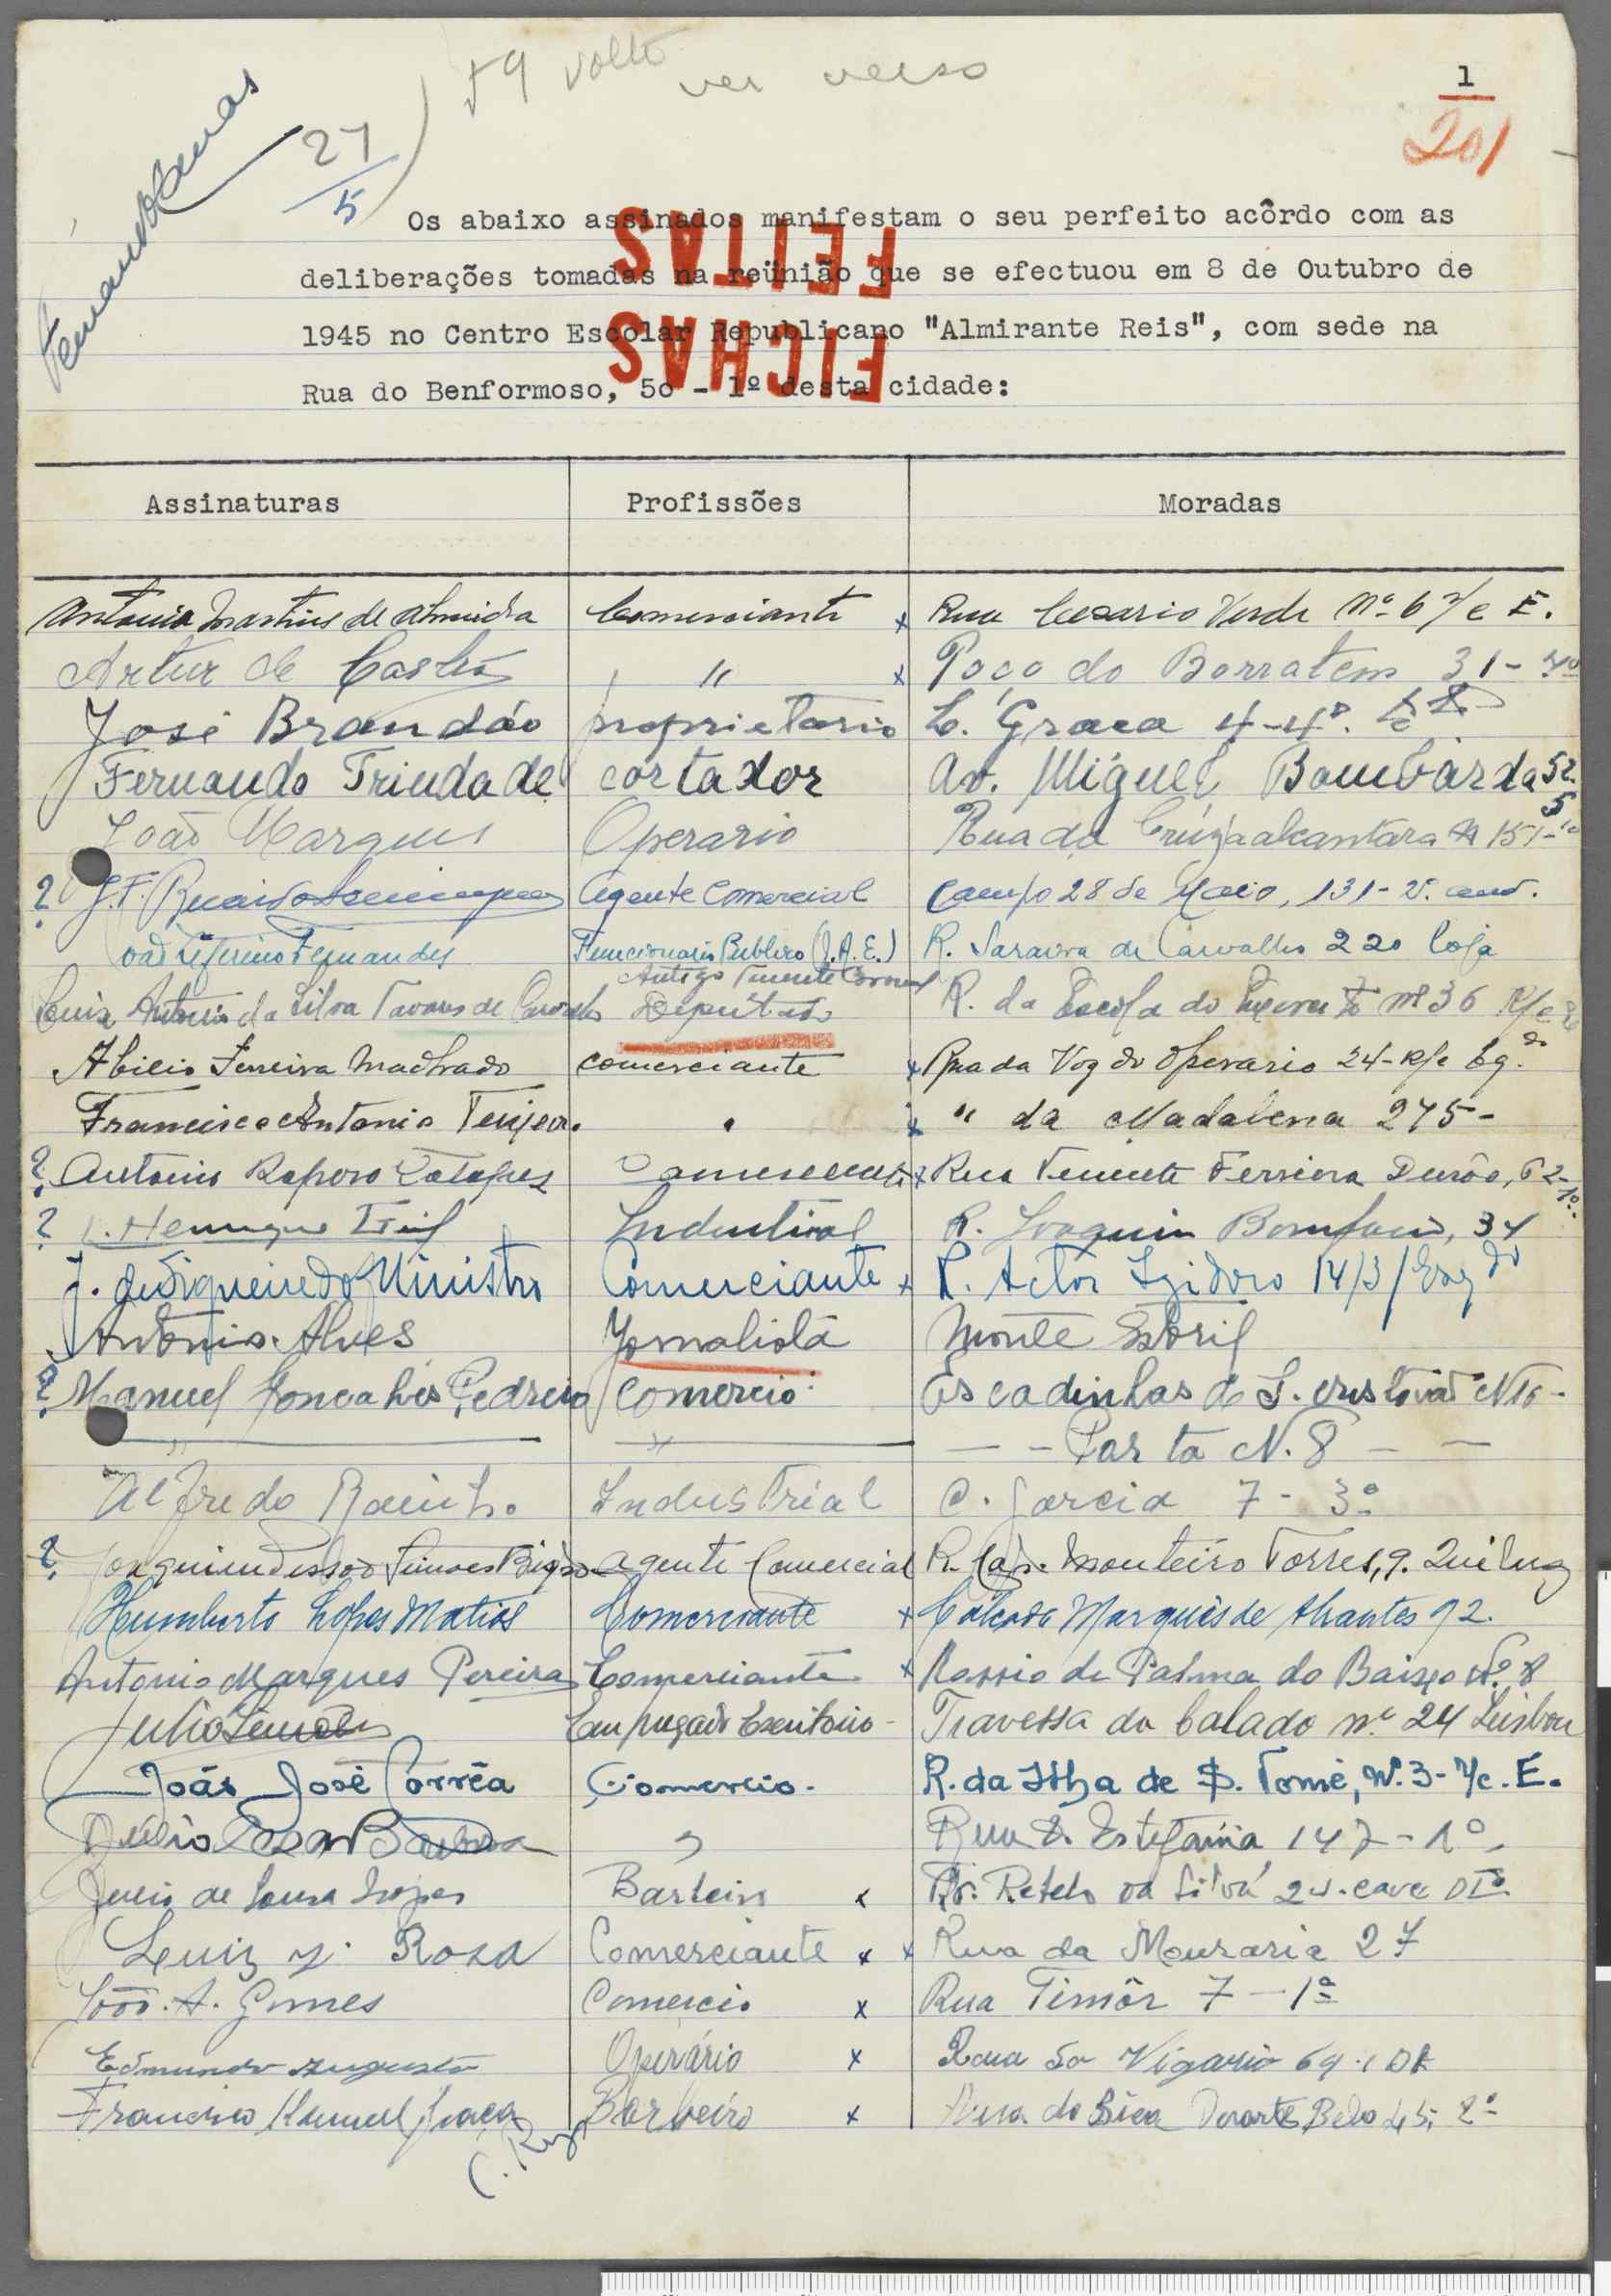 59 volto ver verso
1
201
27
5
Os abaixo assinados manifestam o seu perfeito acôrdo com as
deliberações tomadas na reünião que se efectuou em 8 de Outubro de
1945 no Centro Escolar Republicano "Almirante Reis", com sede na
Rua do Benformoso, 50 - 1º desta cidade:
FICHAS
FEITAS
Assinaturas Profissões Moradas
Antonio Martins de Almeida Comerciante x Rua Cesario Verde Nº 6 r/c E.
Artur de Castro " x Poço do Borratem 31-
José Brandão proprietario L. Graça 4-4º.
Fernando Trindade cortador Av. Miguel Bombarda 52
5
João Marques Operario Rua da Cruz a alcantara 151-
? J. F. Agente Comercial Campo 28 de Maio, 131-2º.
Fernandes Funcionario Publico (J.A.E.) R. Saraiva de Carvalho 220 loja
Antigo Tenente Coronel
Luiz Antonio da Silva Tavares de Carvalho Deputado R. da Escola do Exercito nº 36 R/c
Abilio Ferreira Machado comerciante x Rua da Voz do Operario 24-R/c Eg.do
Francisco Antonio Teixeira " x " da Madalena 275-
? Antonio Raposo Comerciante x Rua Tenente Ferreira Durão, 62-1º.
? Henrique Industrial R. Joaquim Bonifacio, 34
J. de Figueiredo Ministro Comerciante x R. Actor Izidoro 14/3/Esq do
Antonio Alves Jornalista Monte Estoril
? Manuel Gonçalves Pedreiro Comercio Escadinhas de S. Cristovão
" " - - Porta N. 8 - -
Alfredo Raminho Industrial C. Garcia 7 - 3º
? Joaquim Simões Agente Comercial R. Cap. Monteiro Torres, 9. Queluz
Humberto Lopes Matias Comerciante x Calçada Marquês de Abrantes 92.
Antonio Marques Pereira Comerciante x Rossio de Palma do Baixo Nº 8
Julio Empregado Escritorio - Travessa do Calado nº 24 Lisboa
João José Corrêa Comercio. R. da Ilha de S. Tomé, Nº. 3- r/c. E.
Julio Cesar Barbosa " Rua D. Estefania 147-1º
Julio de Sousa Lopes x Av. Rebelo da Silva 24. cave Dto
Luiz J. Rosa Comerciante x x Rua da Mouraria 27
João. A. Gomes Comercio x Rua Timôr 7-1º
Edmundo Augusto Operário x Rua do Vigario 69.1 Dt
Francisco Manuel Graça Barbeiro x Rua da Bica Duarte Belo 45, 2º